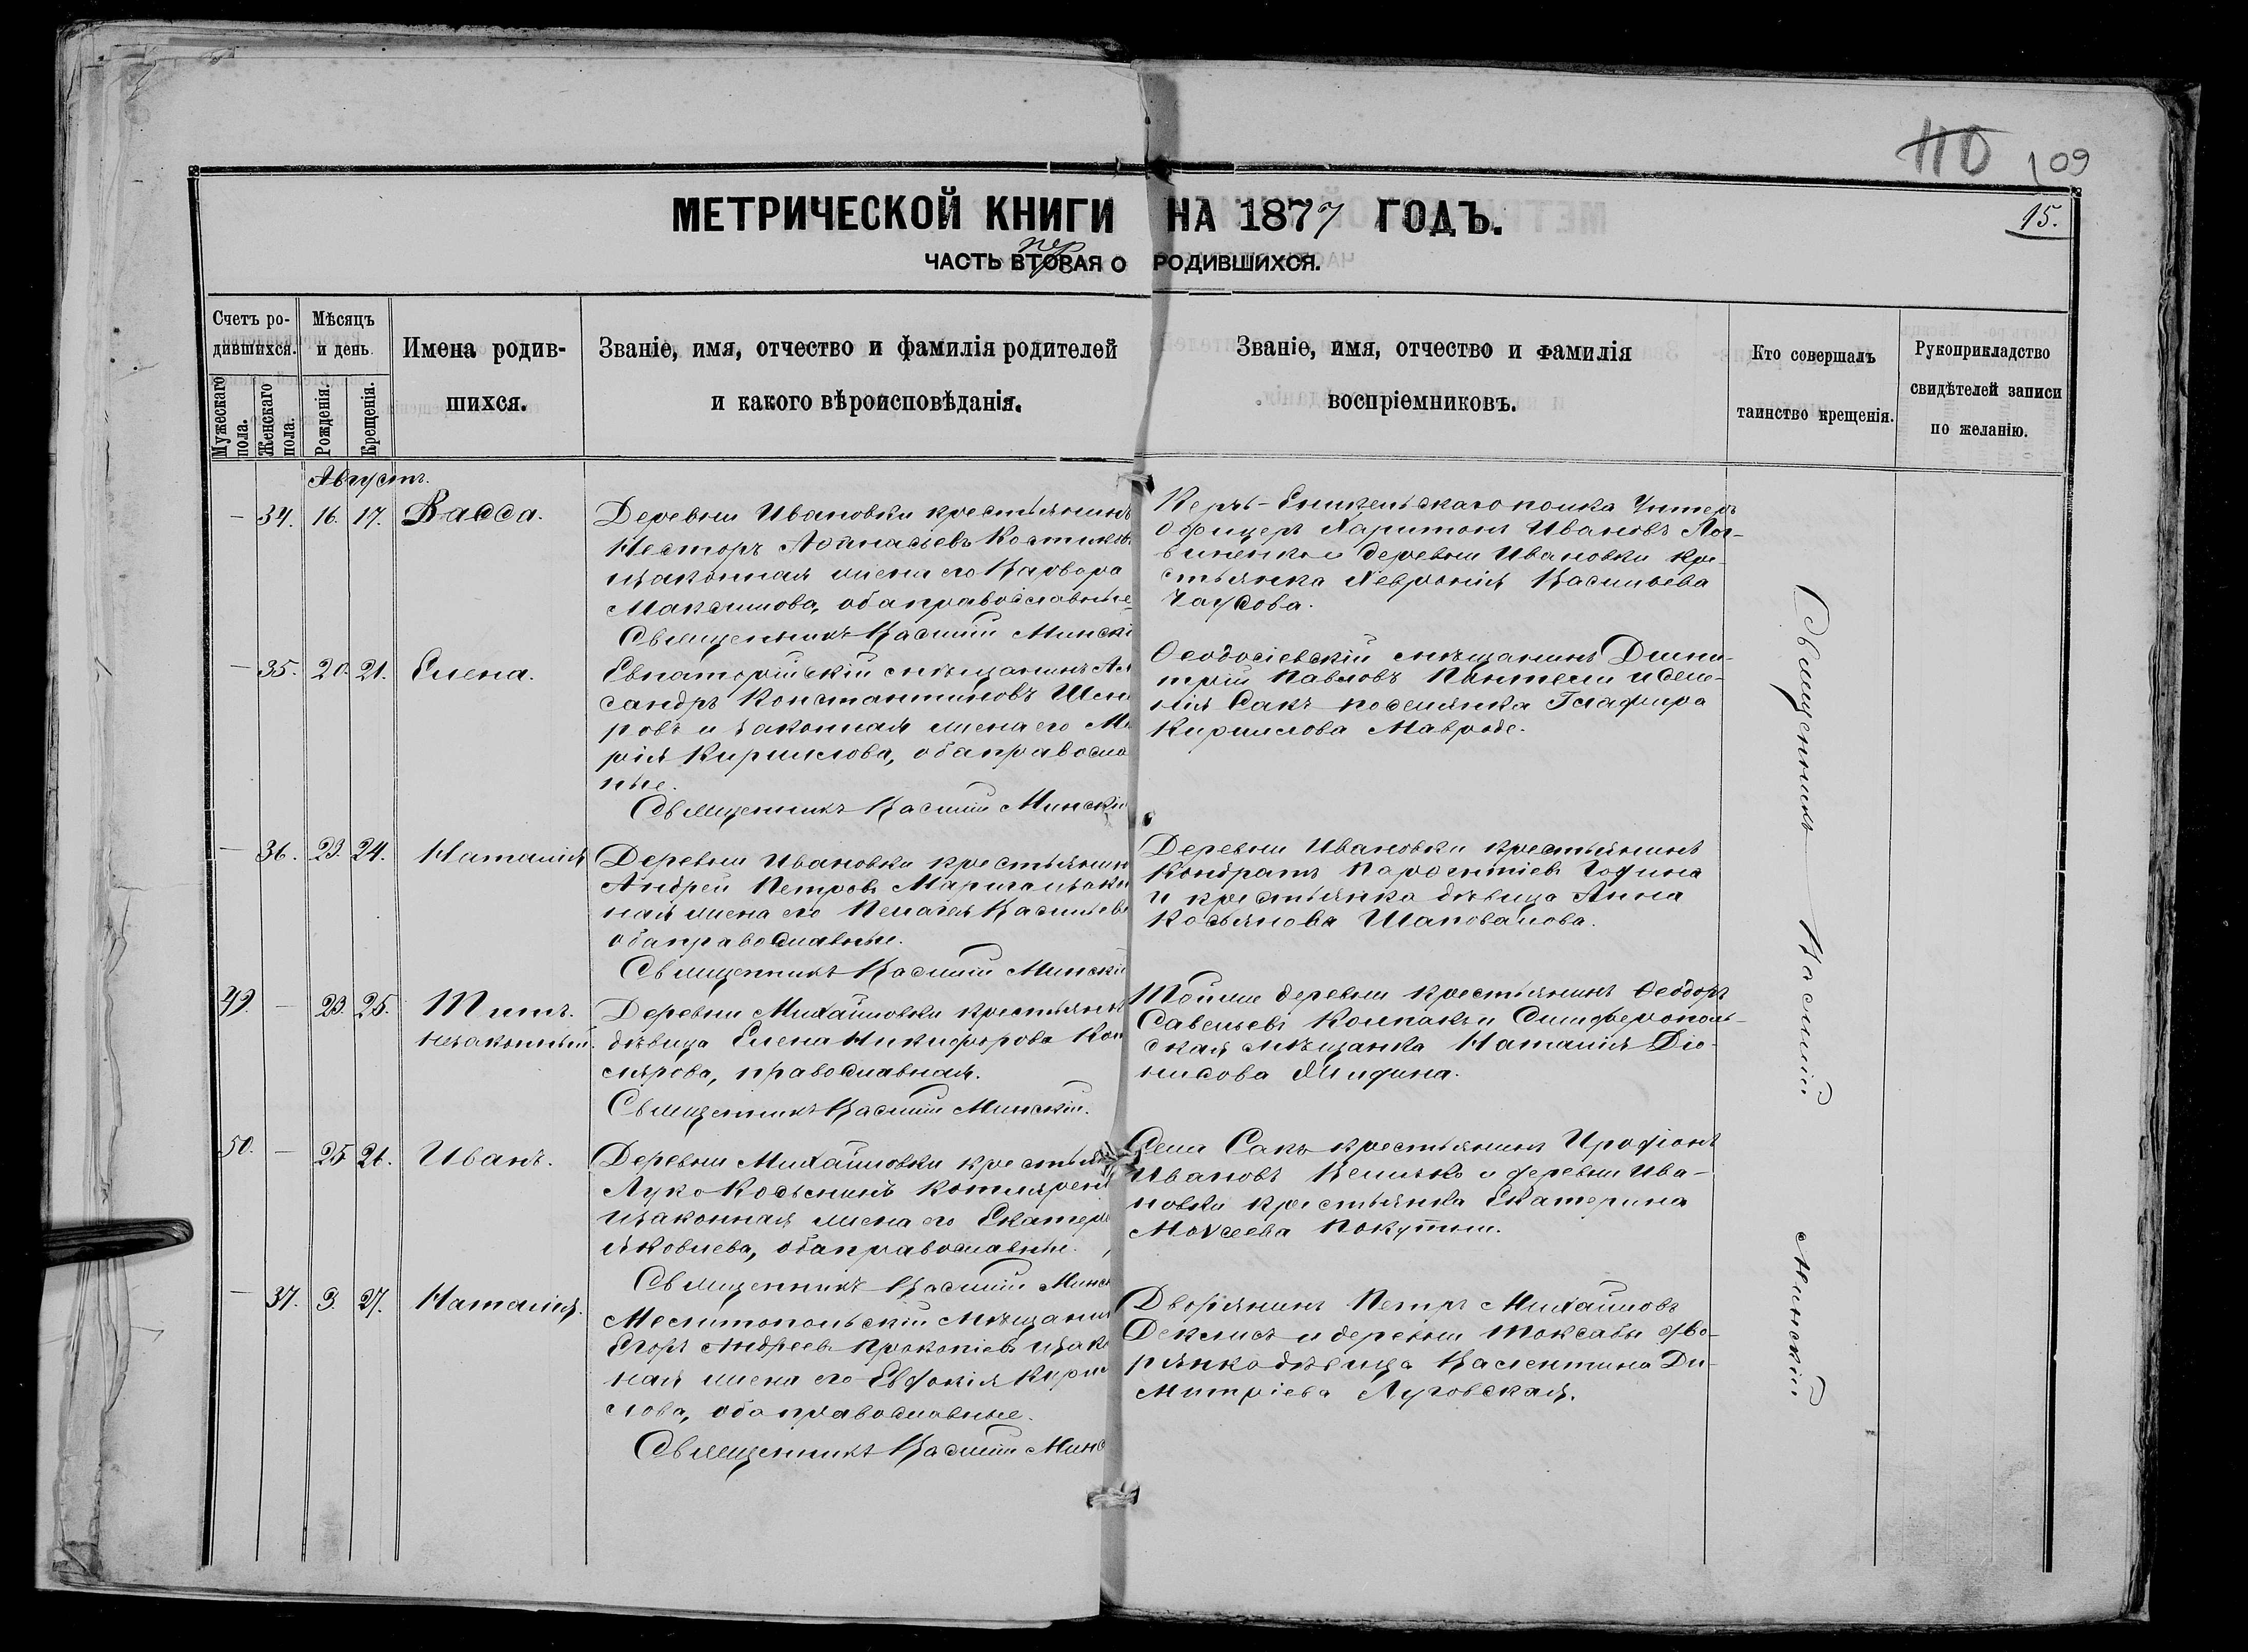 110 109
15.
МЕТРИЧЕСКОЙ КНИГИ НА 1877 ГОДЪ.
пер
ЧАСТЬ ВТОРАЯ О РОДИВШИХСЯ.
Счетъ ро-
дившихся.
Мужескаго
пола.
Женскаго
пола.
Мѣсяцъ
и день.
Рожденія.
Крещенія.
Имена родив-
шихся.
Званіе, имя, отчество и фамилія родителей
и какого вѣроисповѣданія.
Званіе, имя, отчество и фамилія
воспріемниковъ.
Кто совершалъ
таинство крещенія.
Рукоприкладство
свидѣтелей записи
по желанію.
Августъ.
— 34. 16. 17. Васса.
Деревни Ивановки крестьянинъ
Несторъ Аѳанасьевъ Костиковъ
и законная жена его Варвара
Максимова, оба православные
Священникъ Василій Минскі
Керчь-Еникольскаго полка Унтеръ
Офицеръ Харитонъ Ивановъ Лог-
виненко и деревни Ивановки кре-
стьянка Февронія Васильева
Чаусова.
— 35. 20. 21. Елена.
Евпаторійскій мѣщанинъ Ал
сандръ Константиновъ
ровъ и законная жена его Ма
рія Кириллова, оба православ
ные.
Священникъ Василій Минскій
Ѳеодосіевскій мѣщанинъ Дими-
трій Павловъ Пантели и селе-
нія Сакъ поселянка Глафира
Кириллова Мавроде.
— 36. 23. 24. Наталія
Деревни Ивановки крестьянин
Андрей Петровъ
ная жена его Пелагея Васильев
оба православные.
Священникъ Василій Минскі
Деревни Ивановки крестьянинъ
Кондратъ
и крестьянка дѣвица Анна
Касьянова Шаповалова.
49. — 23. 25. Титъ.
незаконный.
Деревни Михайловки крестьянка
дѣвица Елена Никифорова
лярова, православная.
Священникъ Василій Минскій.
Тойже деревни крестьянинъ Ѳеодоръ
Савельевъ Колпакъ и Симферополь-
ская мѣщанка Наталія Діо-
нисова
50. — 25. 26. Иванъ.
Деревни Михайловки крестьян
Лука Косьминъ Котляренк
и законная жена его Екатери
Яковлева, оба православные.
Священникъ Василій Минск
Села Сакъ крестьянинъ
Ивановъ и деревни Ива-
новки крестьянка Екатерина
Моѵсеева
— 37. 3. 27. Наталія.
Мелитопольскій мѣщанин
Егоръ Андреевъ Прокопіевъ и зако
ная жена его Евдокія Кирил
лова, оба православные.
Священникъ Василій Минс
Дворянинъ Петръ Михайловъ
и деревни Токсабы дво-
рянка дѣвица Валентина Ди-
митріева Луговская.
Священникъ Василій Минскій